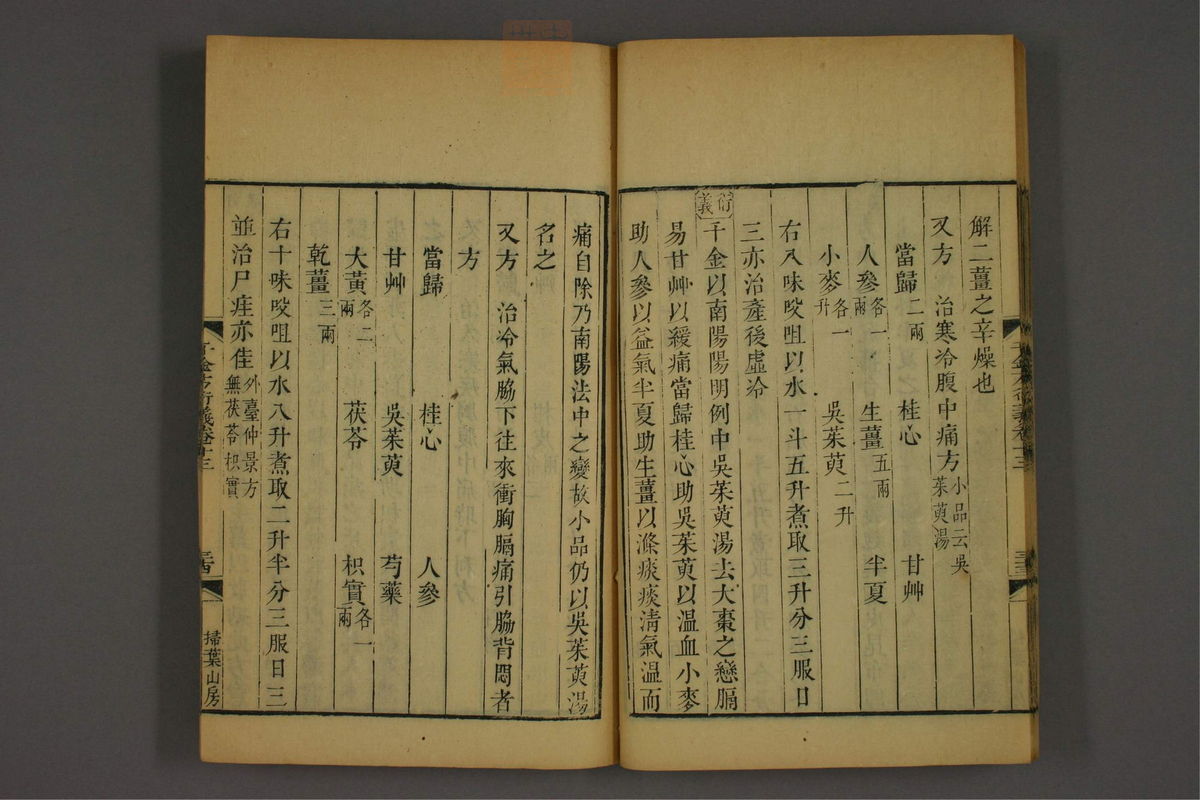 解二薑之辛燥也
又方　治寒冷腹中痛方小品云吳茱萸湯
當歸二兩　桂心　甘艸
人參各一兩　生薑五兩　半夏
小麥各一升　吳茱萸二升
右八味㕮咀以水一斗五升煮取三升分三服日
三亦治產後虛冷
衍義　千金以南陽陽明例中吳茱萸湯去大棗之戀膈
易甘艸以緩痛當歸桂心助吳茱萸以溫血小麥
助人參以益氣半夏助生薑以滌痰痰清氣溫而
痛自除乃南陽法中之變故小品仍以吳茱萸湯
名之
又方　治冷氣脇下往來衝胸膈痛引脇背悶者
方
當歸　桂心　人參
甘艸　吳茱萸　芍藥
大黃各二兩　茯苓　枳實各一兩
乾薑三兩
右十味㕮咀以水八升煮取二升半分三服日三
並治尸疰亦佳外臺仲景方無茯苓枳實
千金方衍義卷十三
掃葉山房